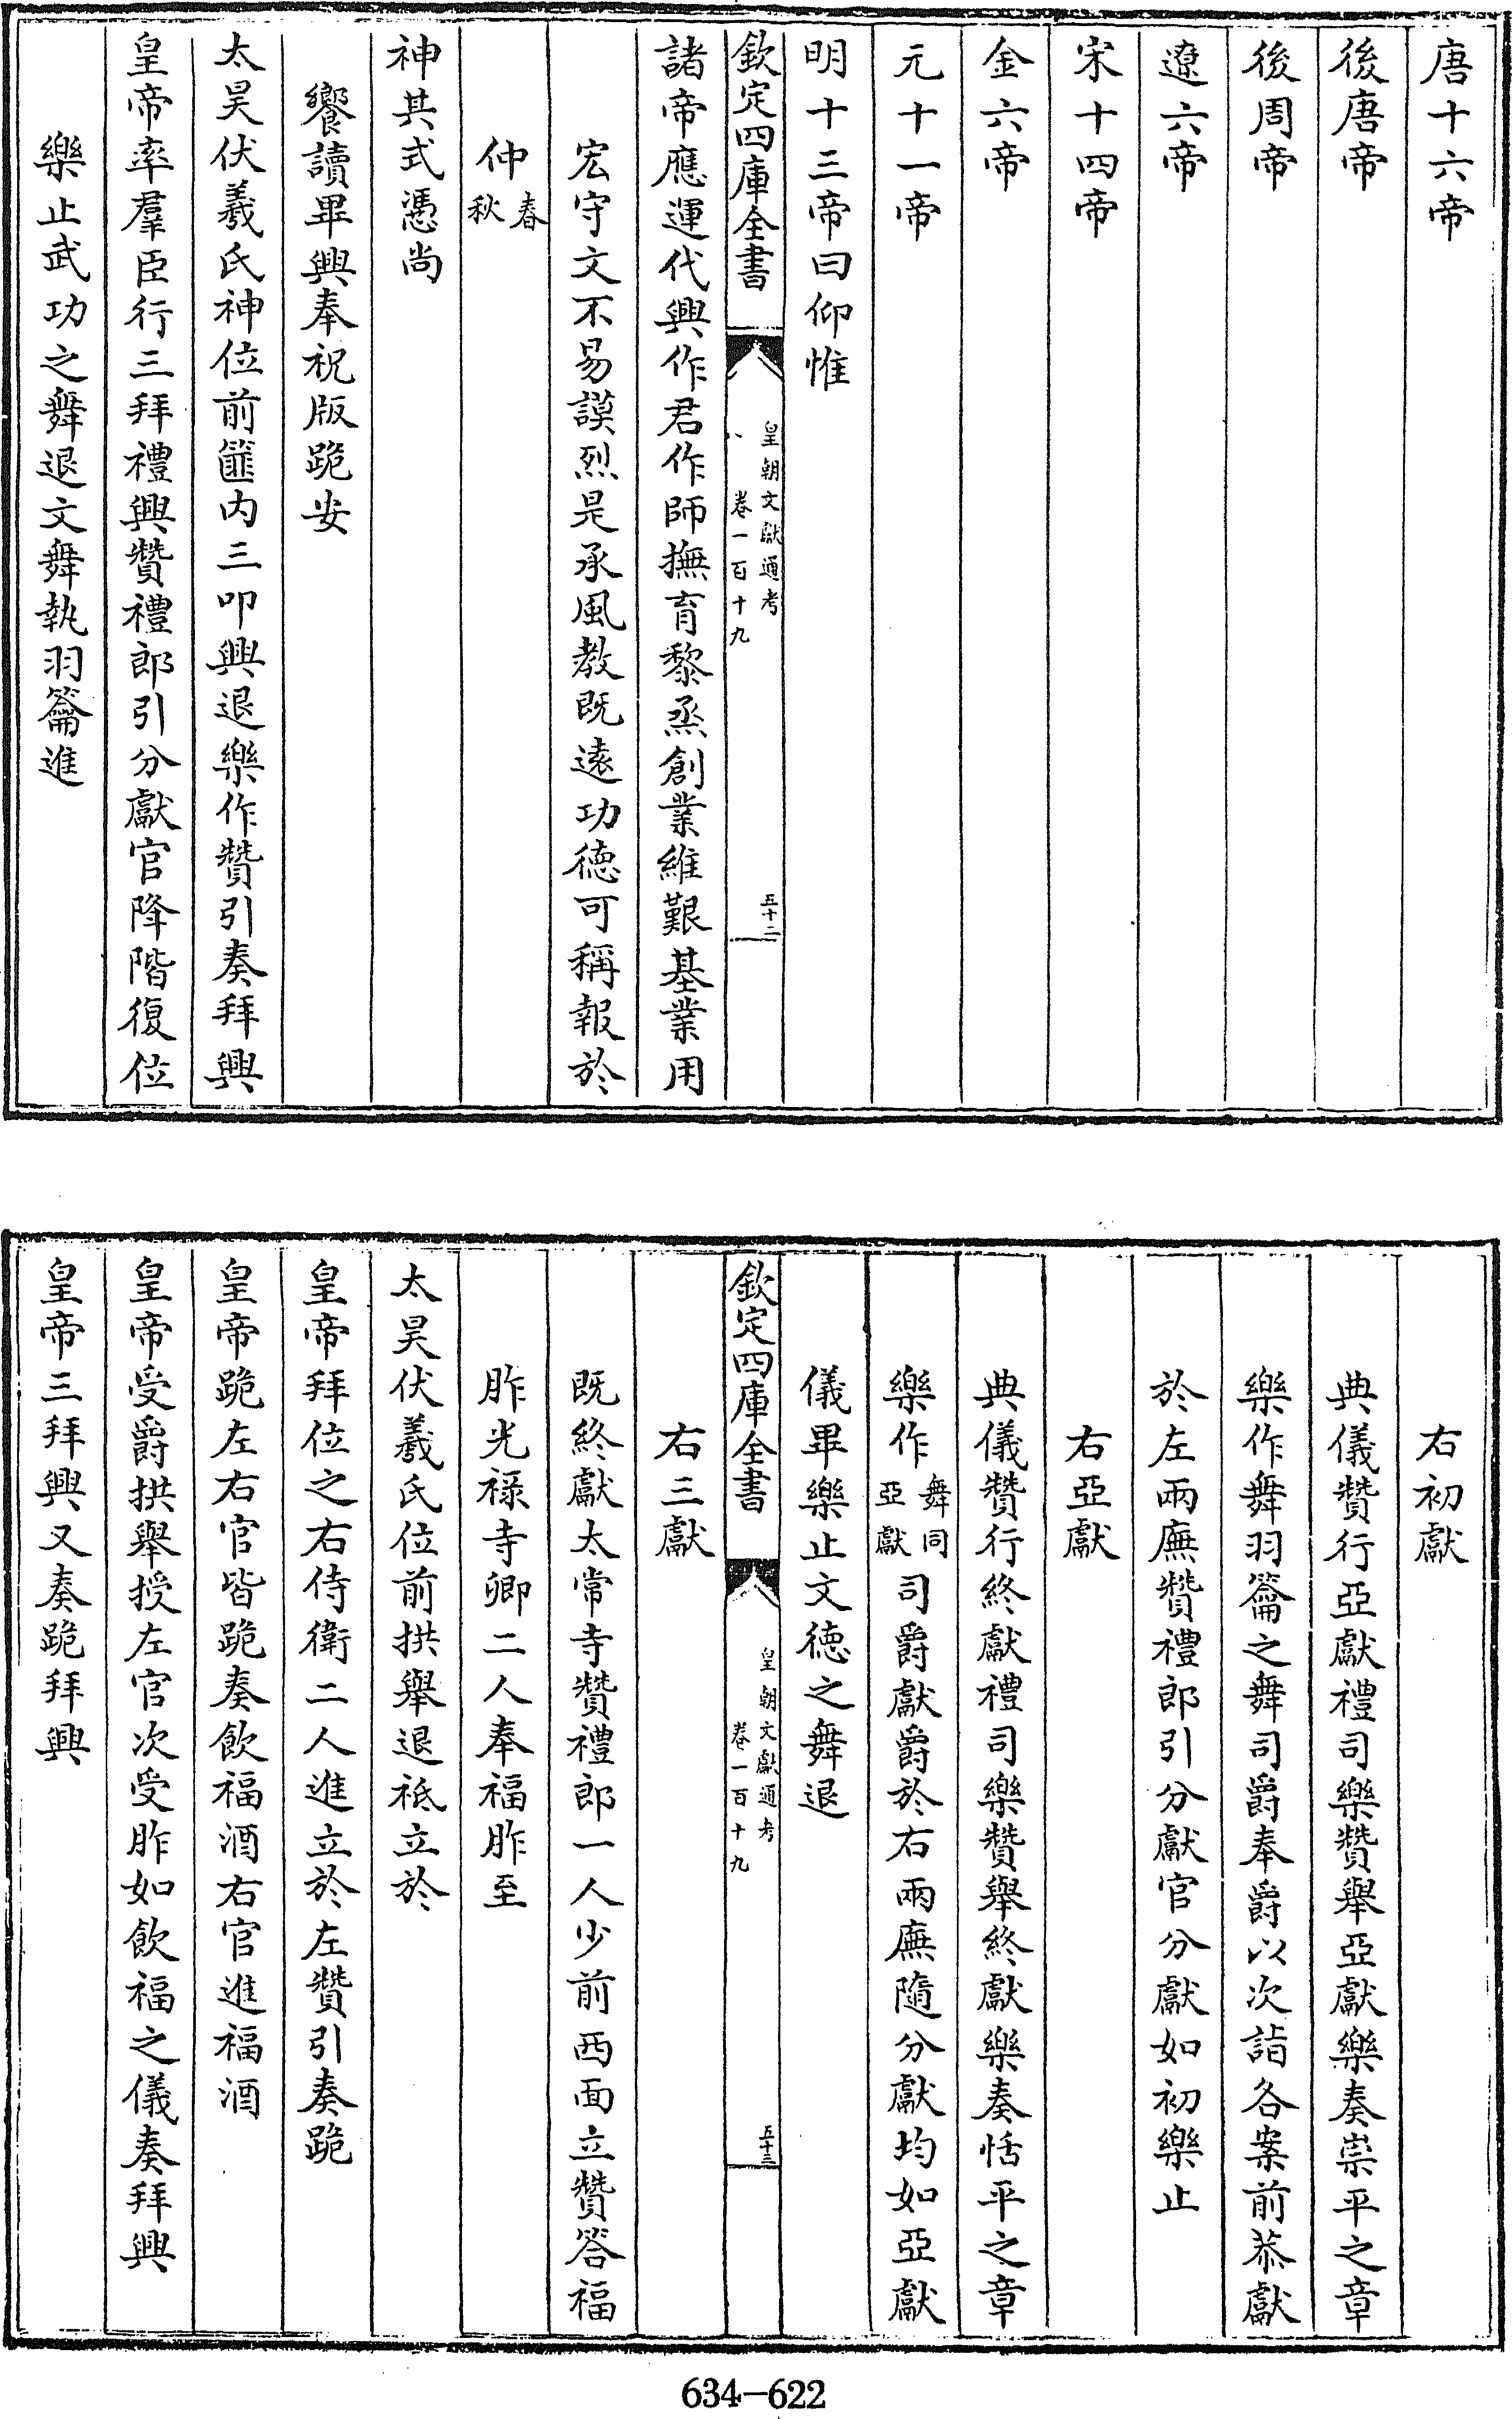 唐十六帝
後唐帝
後周帝
遼六帝
宋十四帝
金六帝
元十一帝
明十三帝曰仰惟
欽定四庫全書
皇朝文獻通考
卷一百十九
五十二
諸帝應運代興作君作師撫育黎烝創業維艱基業用
宏守文不易謨烈是承風教既遠功德可稱報於
仲春秋
神其式憑尚
饗讀畢興奉祝版跪安
太昊伏羲氏神位前篚内三叩興退樂作贊引奏拜興
皇帝率羣臣行三拜禮興贊禮郎引分獻官降階復位
樂止武功之舞退文舞執羽籥進
右初獻
典儀贊行亞獻禮司樂贊舉亞獻樂奏崇平之章
樂作舞羽籥之舞司爵奉爵以次詣各案前恭獻
於左兩廡贊禮郎引分獻官分獻如初樂止
右亞獻
典儀贊行終獻禮司樂贊舉終獻樂奏恬平之章
樂作舞同亞獻司爵獻爵於右兩廡隨分獻均如亞獻
儀畢樂止文德之舞退
欽定四庫全書
皇朝文獻通考
卷一百十九
五十三
右三獻
既終獻太常寺贊禮郎一人少前西面立贊答福
胙光禄寺卿二人奉福胙至
太昊伏羲氏位前拱舉退祗立於
皇帝拜位之右侍衛二人進立於左贊引奏跪
皇帝跪左右官皆跪奏飲福酒右官進福酒
皇帝受爵拱舉授左官次受胙如飲福之儀奏拜興
皇帝三拜興又奏跪拜興
634-622